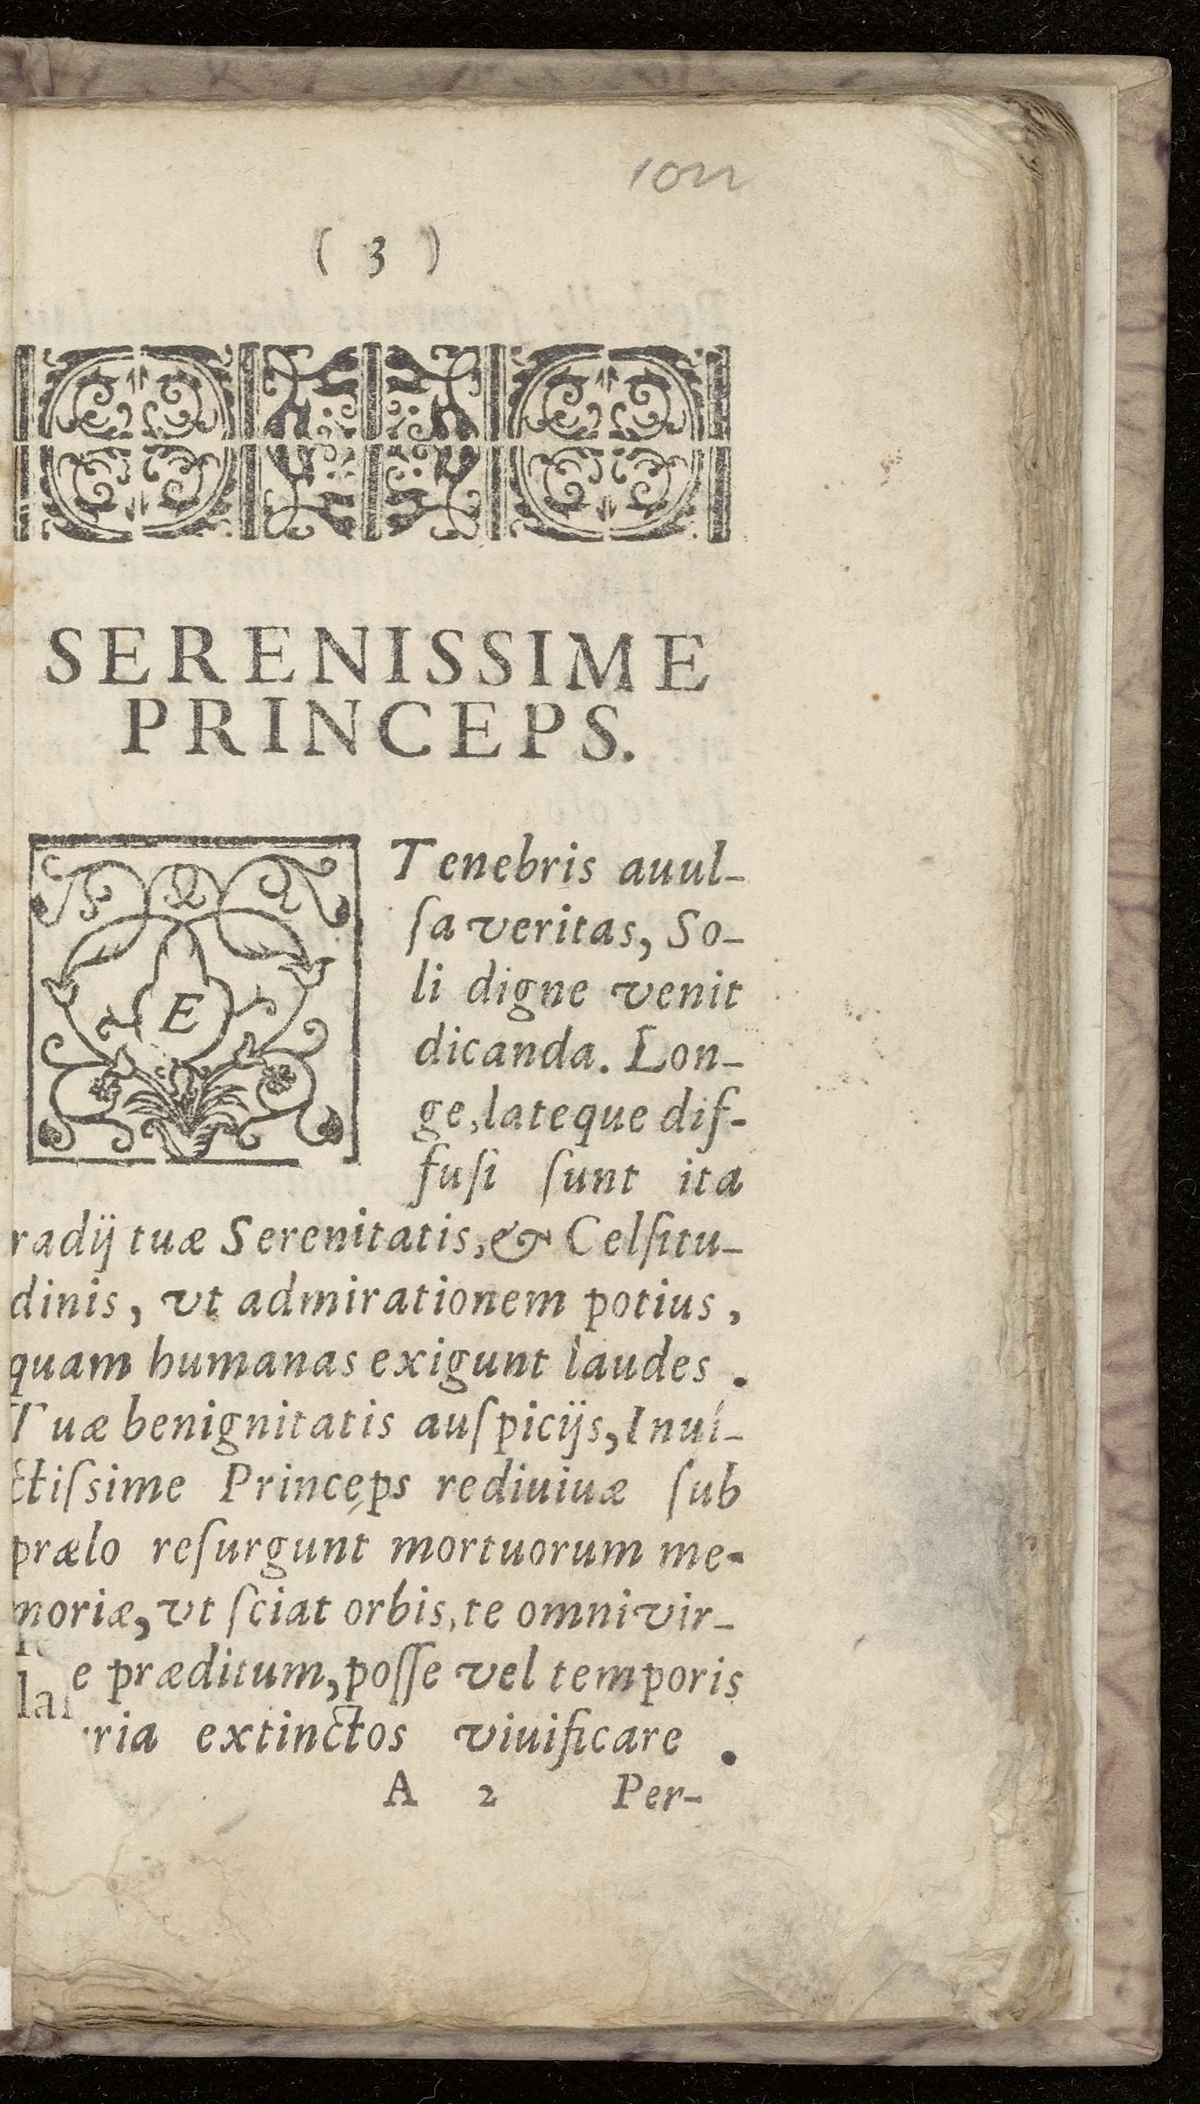 1011
( 3 )
SERENISSIME
PRINCEPS.
E Tenebris auul-
ſa veritas, So-
li digne venit
dicanda. Lon-
ge, lateque dif-
fuſi ſunt ita
radij tuæ Serenitatis, & Celſitu-
dinis, vt admirationem potius,
quam humanas exigunt laudes.
Tuæ benignitatis auſpicijs, Inui-
ctiſsime Princeps rediuiuæ ſub
prælo reſurgunt mortuorum me-
moriæ, vt ſciat orbis, te omni vir-
e præditum, poſſe vel temporis
ria extinctos viuificare.
A 2 Per-